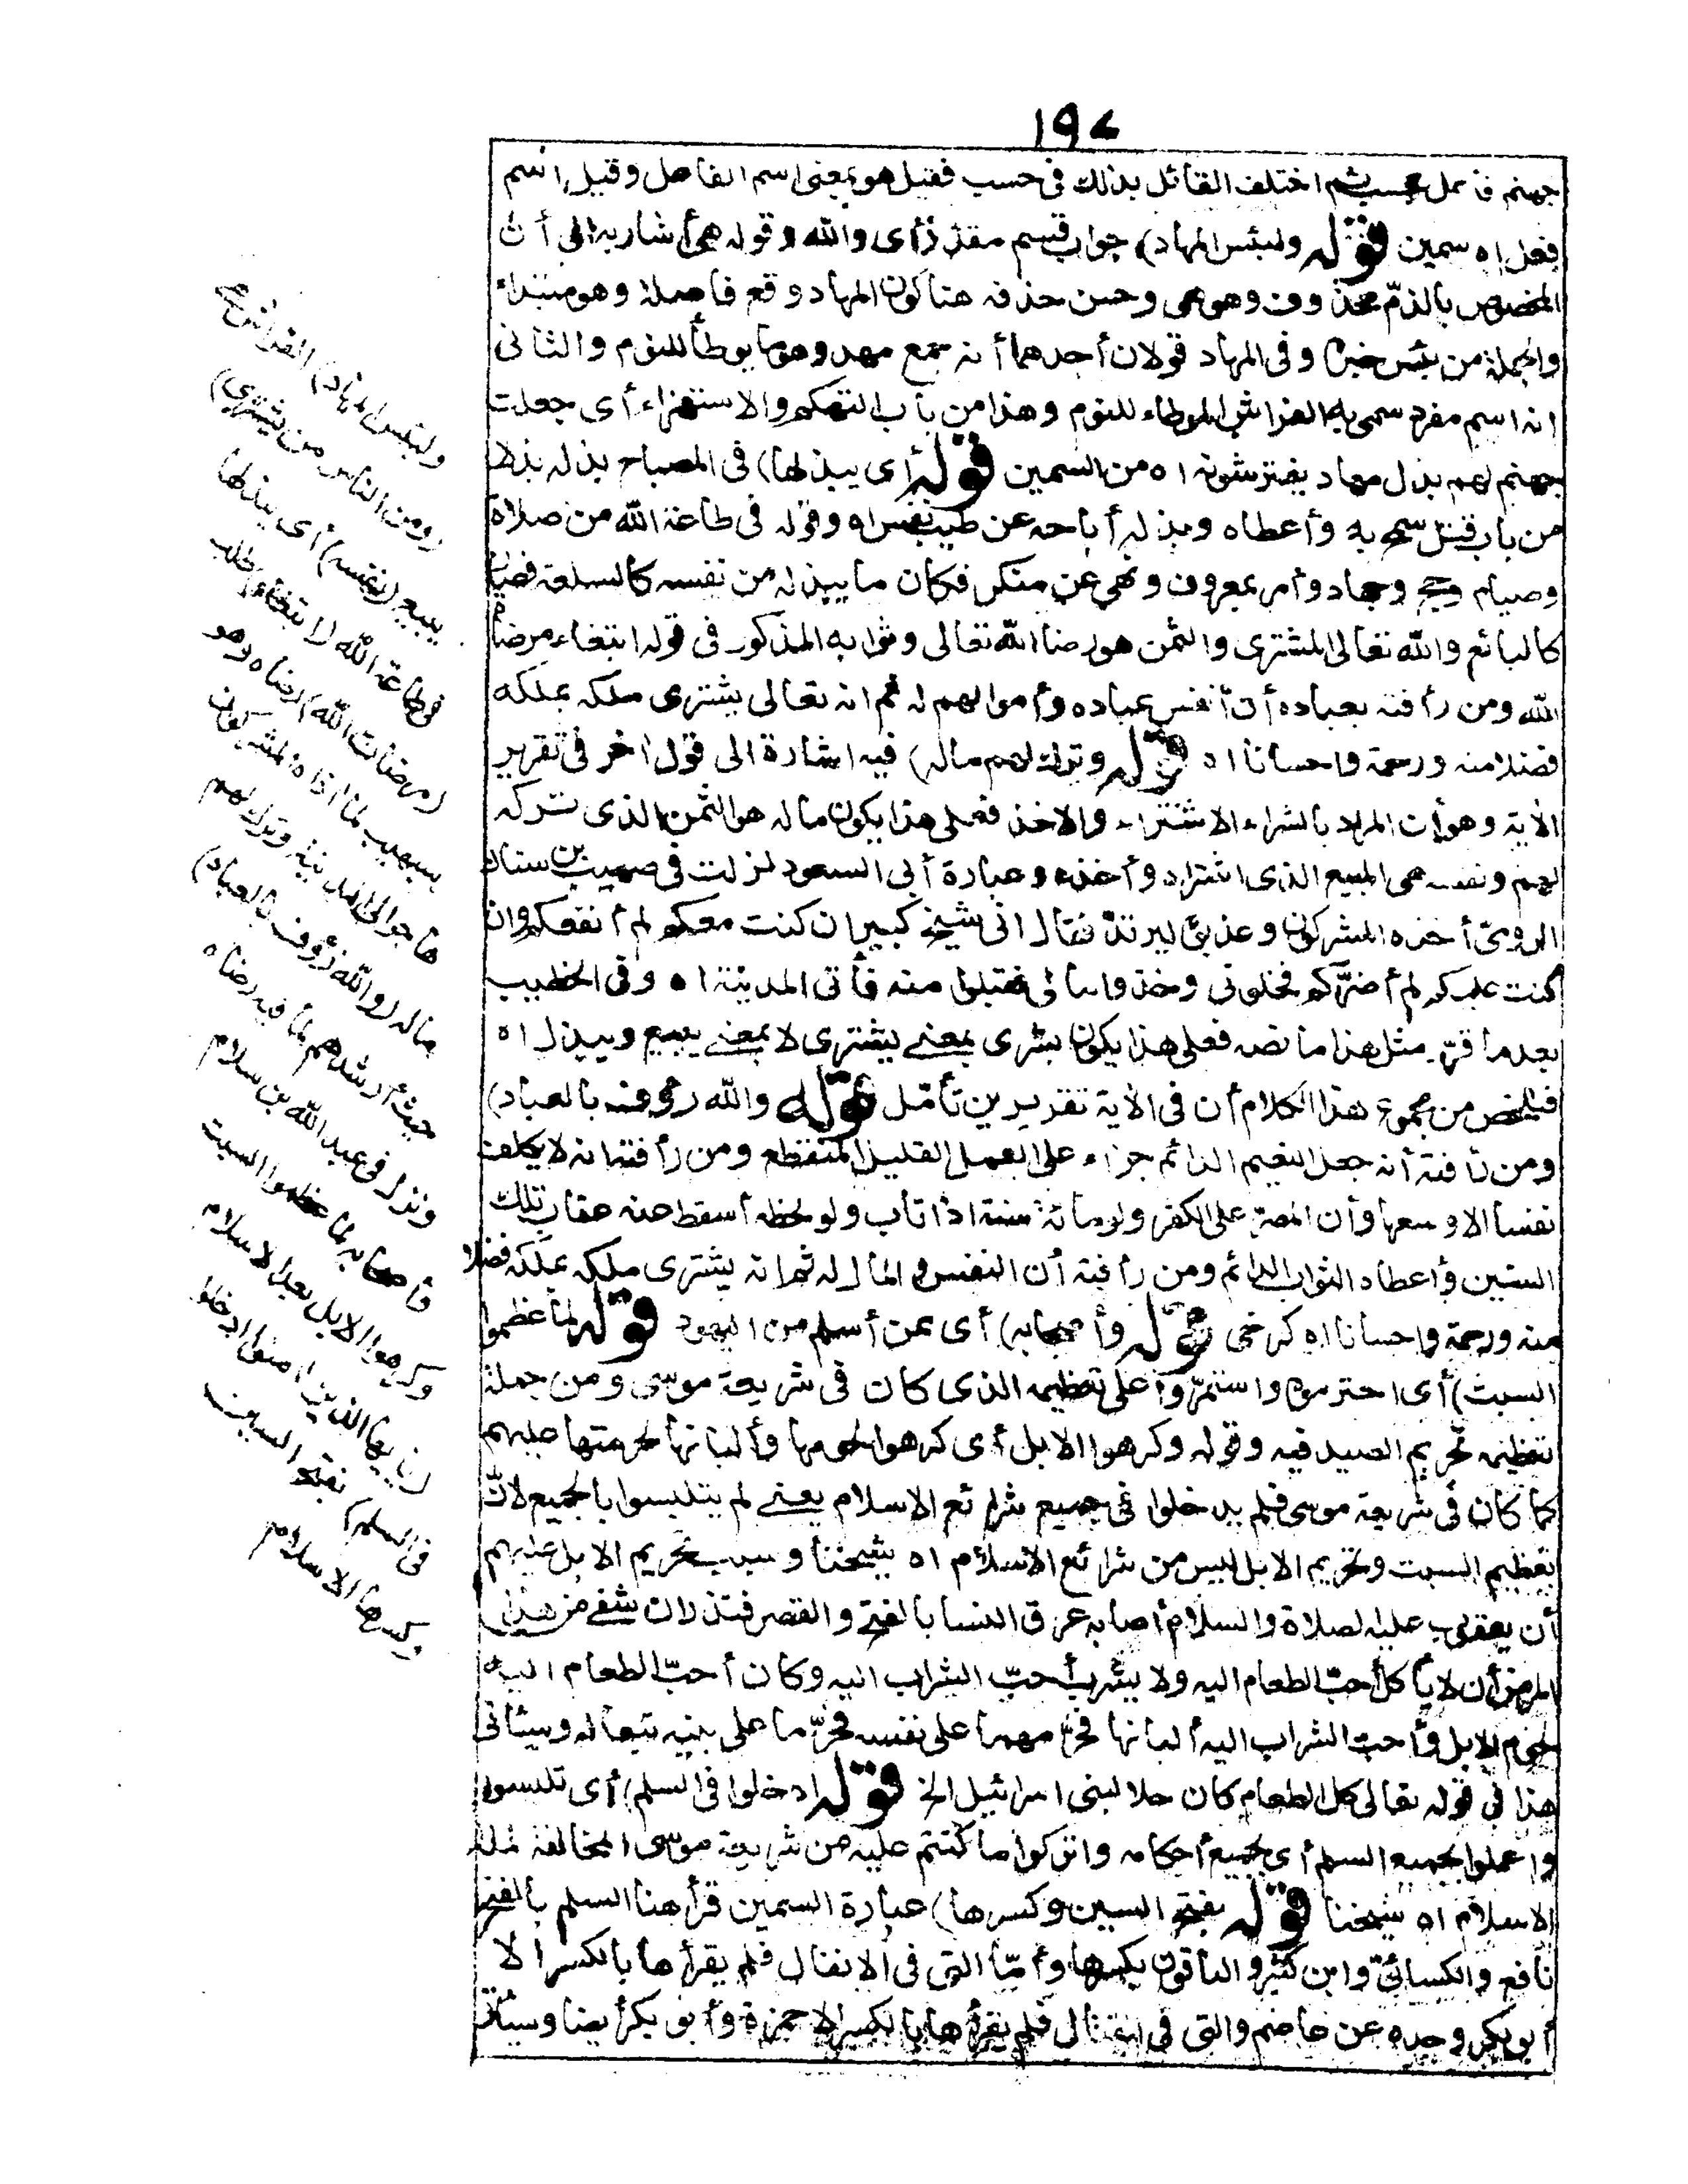 ١٩٤
جهنم فاعل بحسب ثم اختلف القائل بذلك فى حسب فقيل هو بمعنى اسم الفاعل وقيل اسم
فعل اه سمين قوله ولبئس المهاد) جواب قسم مقدّر أى والله وقوله هى أشار به الى أن
المخصوص بالذمّ محذوف وهو هى وحسن حذفه هنا كون المهاد وقع فاصلا وهو مبتداء
والجملة من بئس خبره وفى المهاد قولان أحدهما أنه جمع مهد وهو ما يوطأ للنوم والثانى
انه اسم مفرد سمى به الفراش الموطاء للنوم وهذا من باب التهكم والاستهزاء أى جعلت
جهنم لهم بدل مهاد يفترشونه اه من السمين قوله أى يبذلها) فى المصباح بذله بذلا
من باب قتل سمح به وأعطاه وبذله أباحه عن طيب نفس اه وقوله فى طاعة الله من صلاة
وصيام وحج وجهاد وأمر بمعروف ونهى عن منكر فكان ما يبذله من نفسه كالسلعة فصار
كالبائع والله تعالى المشترى والثمن هو رضا الله تعالى وثوابه المذكور فى قوله ابتغاء مرضاة
الله ومن رأفته بعباده أن أنفس عباده وأموالهم له ثم انه تعالى يشترى ملكه بملكه
فضلا منه ورحمة واحسانا اه قوله وترك لهم ماله) فيه اشارة الى قول اخر فى تقرير
الاية وهو أن المراد بالشراء الاشتراء والاخذ فعلى هذا يكون ماله هو الثمن الذى تركه
لهم ونفسه هى المبيع الذى اشتراه وأخذه وعبارة أبى السعود نزلت فى صهيب بن سنان
الرومىّ أخذه المشركون وعذبوه ليرتدّ فقال انى شيخ كبير ان كنت معكم لم أنفعكم وان
كنت عليكم لم أضرّكم فخلونى وخذوا مالى فقبلوا منه فأتى المدينة اه وفى الخطيب
بعدما قرّر مثل هذا ما نصه فعلى هذا يكون يشرى بمعنى يشترى لا بمعنى يبيع ويبذل اه
فتلخص من مجموع هذا الكلام أن فى الاية تقريرين تأمّل قوله والله رؤوف بالعباد)
ومن رأفته أنه جعل النعيم الدائم جزاء على العمل القليل المنقطع ومن رأفته انه لا يكلف
نفسا الا وسعها وأن المصرّ على الكفر ولو مائة سنة اذا تاب ولو لحظة أسقط عنه عقاب تلك
السنين وأعطاه الثواب الدائم ومن رأفته أن النفس والمال له ثم انه يشترى ملكه بملكه فضلا
منه ورحمة واحسانا اه كرخى قوله وأصحابه) أى ممن أسلم من اليهود قوله لما عظموا
السبت) أى احترموه واستمرّوا على تعظيمه الذى كان فى شريعة موسى ومن جملة
تعظيمه تحريم الصيد فيه وقوله وكرهوا الابل أى كرهوا لحومها وألبانها لحرمتها عليهم
كما كان فى شريعة موسى فلم يدخلوا فى جميع شرائع الاسلام يعنى لم يتلبسوا بالجميع لانّ
تعظيم السبت وتحريم الابل ليس من شرائع الاسلام اه شيخنا وسبب تحريم الابل عليهم
أن يعقوب عليه الصلاة والسلام أصابه عرق النسا بالفتح والقصر فنذر ان شفى من هذا
المرض أن لا يأكل أحبّ الطعام اليه ولا يشرب أحبّ الشراب اليه وكان أحبّ الطعام اليه
لحوم الابل وأحب الشراب اليه ألبانها فحرّمهما على نفسه فحرّما على بنيه تبعا له وسيأتى
هذا فى قوله تعالى كل الطعام كان حلا لبنى اسرائيل الخ قوله ادخلوا فى السلم) أى تلبسوا
واعملوا بجميع السلم أى بجميع أحكامه واتركوا ما كنتم عليه من شريعة موسى المخالفة لملة
الاسلام اه شيخنا قوله بفتح السين وكسرها) عبارة السمين قرأ هنا السلم بالفتح
نافع والكسائىّ وابن كثير والباقون بكسرها وأمّا التى فى الانفال فلم يقرأها بالكسر الا
أبو بكر وحده عن عاصم والتى فى القتال فلم يقرأها بالكسر الا حمزة وأبو بكر أيضا وسيأتى
ولبئس المهاد) الفراش هى
(ومن الناس من يشترى)
يبيع (نفسه) أى يبذلها
فى طاعة الله (ابتغاء) طلب
(مرضات الله) رضاه وهو
صهيب لما اذاه المشركون
هاجر الى المدينة وترك لهم
ماله (والله رؤوف بالعباد)
حيث أرشدهم لما فيه رضاه
ونزل فى عبد الله بن سلام
وأصحابه لما عظموا السبت
وكرهوا الابل بعد الاسلام
(يا أيها الذين امنوا ادخلوا
فى السلم) بفتح السين
وكسرها الاسلام